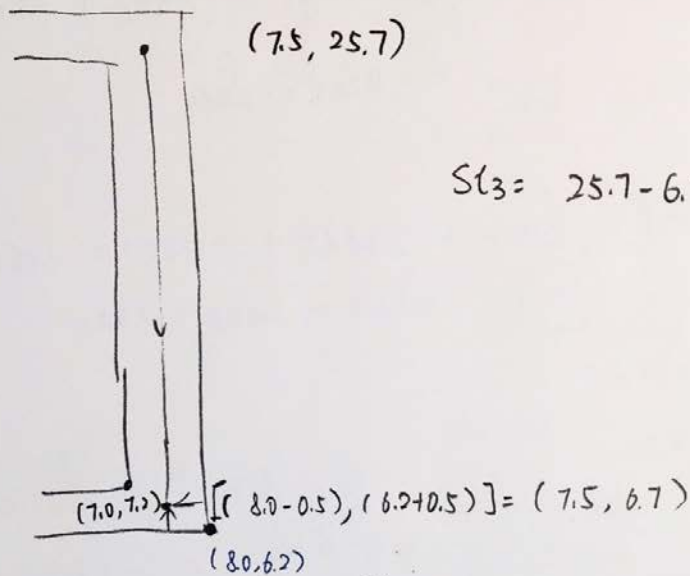 (7.5, 25.7)
Sl3 = 25.7-6.
(7.0, 7.2) [( 8.0-0.5), ( 6.2+0.5) ] = ( 7.5, 6.7 )
(8.0, 6.2)